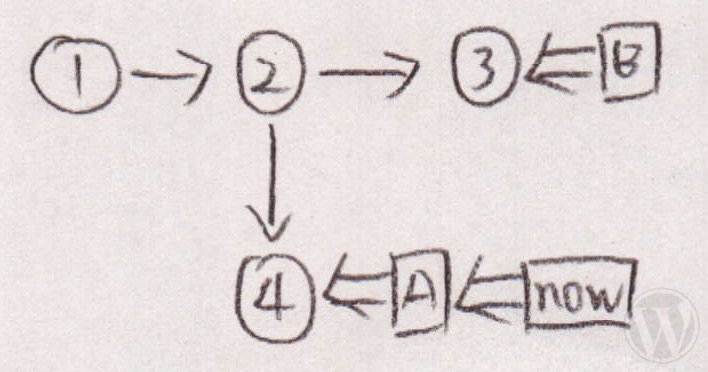 1 2 3 B
4 A now